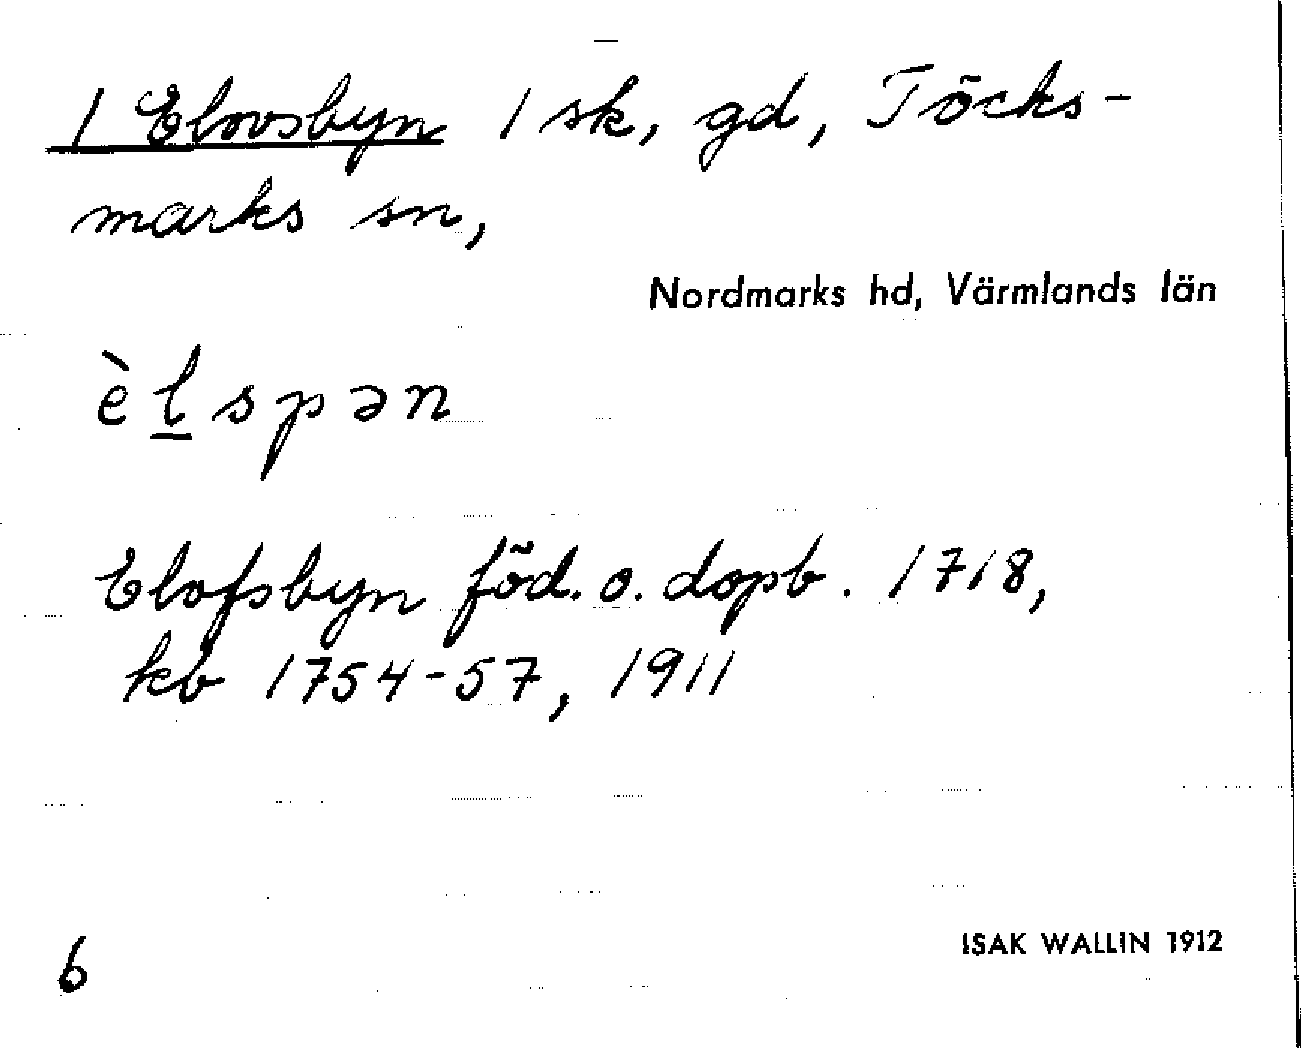 1 Elovsbyn 1 sk, gd, Töcks-
marks sn,
Nordmarks hd, Värmlands län
èl̲spən
Elofsbyn föd. o. dopb. 1718,
kb 1754-57, 1911
6
ISAK WALLIN 1912